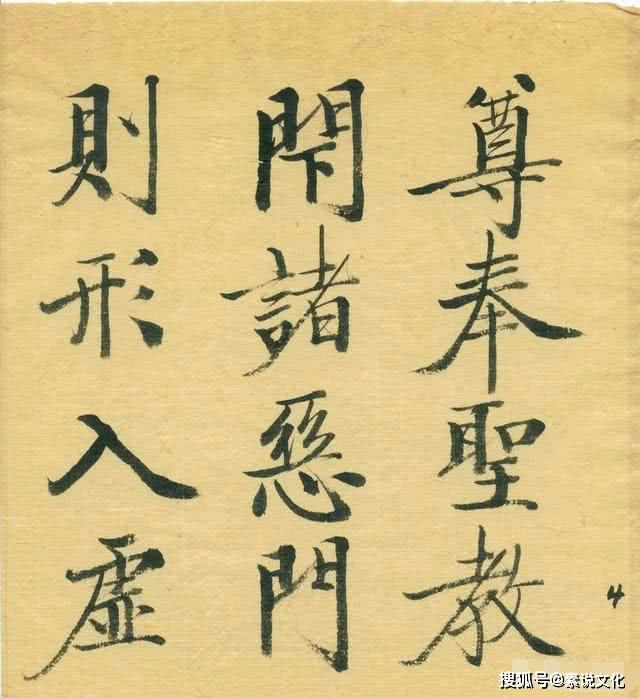 尊奉聖教
閇諸惡門
則形入虚
4
搜狐号@素说文化